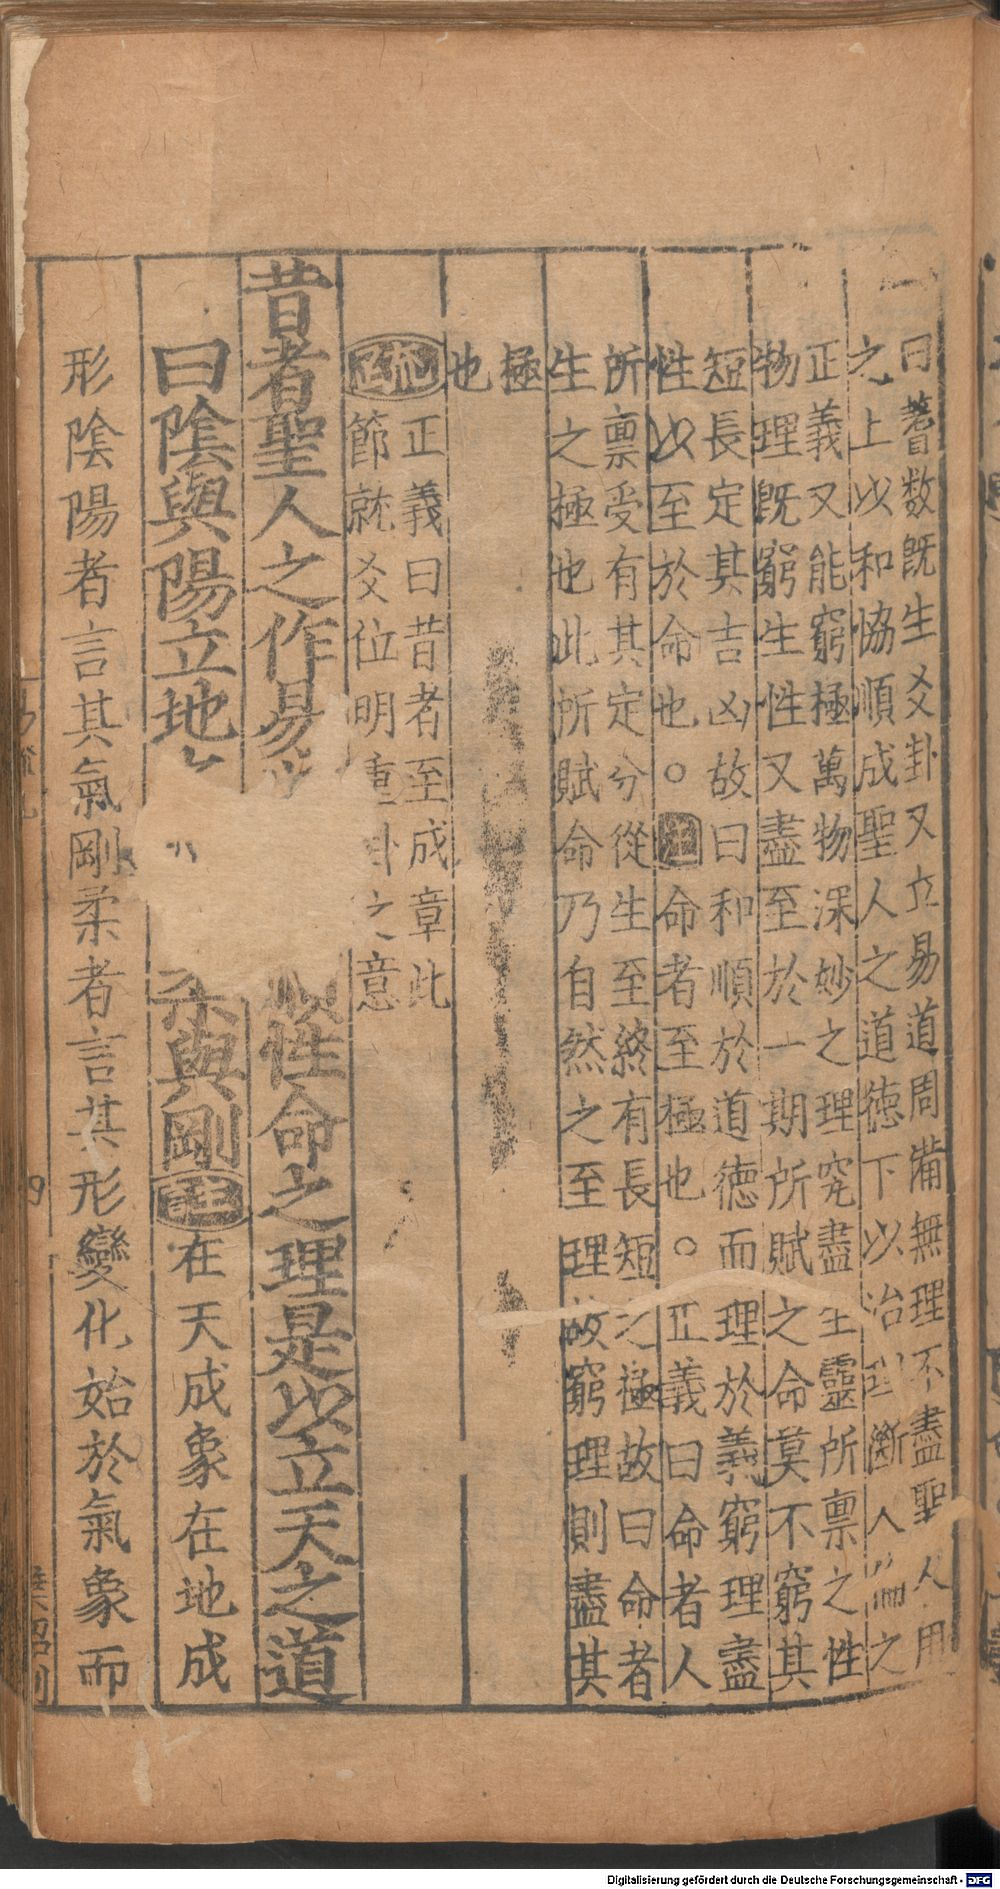 曰蓍数既生爻卦又立易道周備無理不盡聖人用
之上以和恊順成聖人之道德下以治斷人倫之
正義又能窮極萬物深妙之理究盡生靈所禀之性
物理既窮生性又盡至於一期所賦之命莫不窮其
短長定其吉凶故曰和順於道德而理於義窮理盡
性以至於命也○注命者至極也○正義曰命者人
所禀受有其定分從生至終有長短之極故曰命者
生之極也此所賦命乃自然之至理故窮理則盡其
極
也
疏正義曰昔者至成章此
節就爻位明重卦之意
昔者聖人之作易順性命之理是以立天之道
曰陰與陽立地柔與剛注在天成象在地成
形陰陽者言其氣剛柔者言其形變化始於氣象而
Digitalisierung gefördert durch die Deutsche Forschungsgemeinschaft - DFG